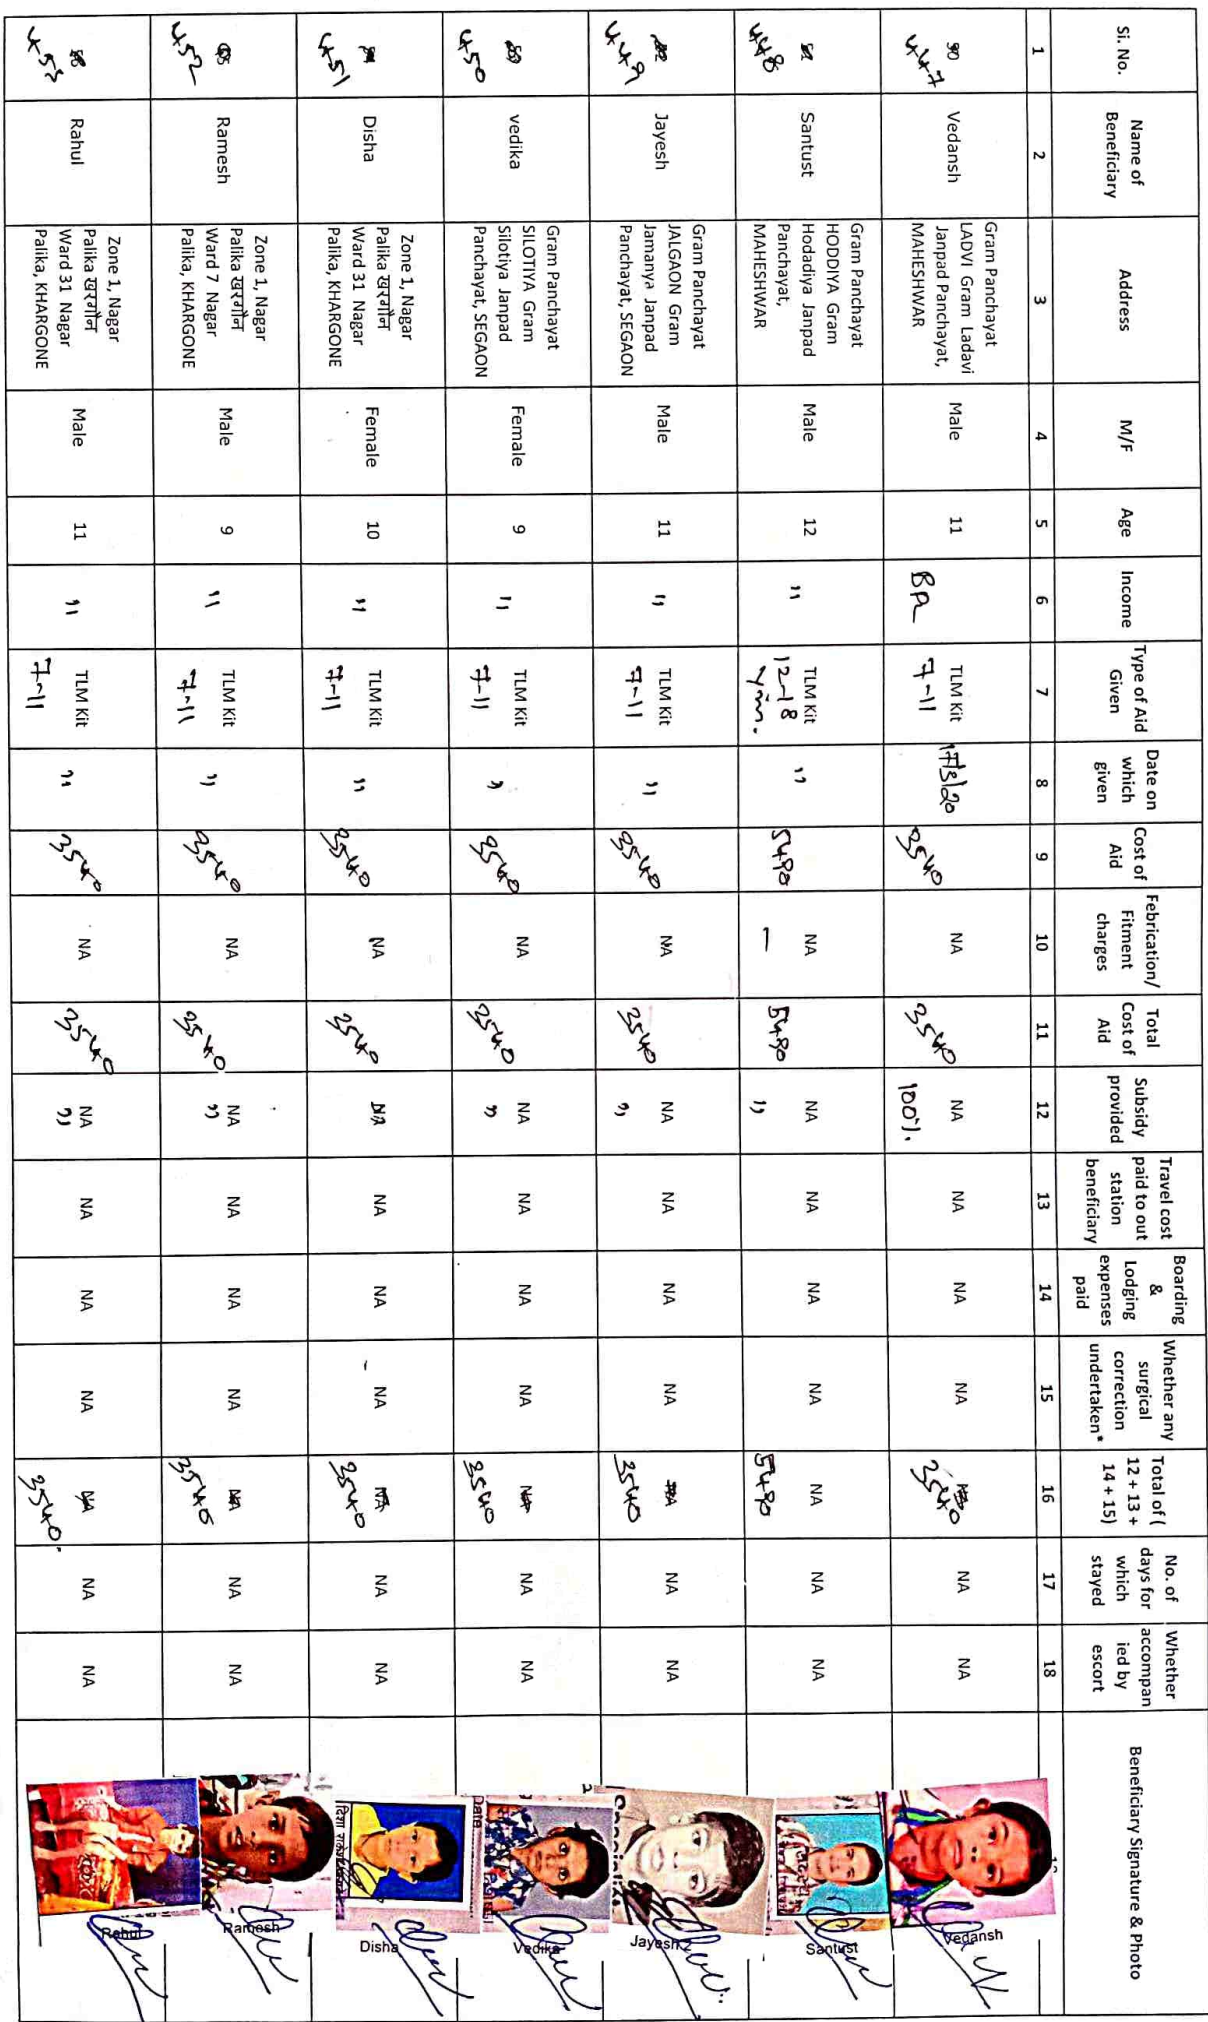 Si. No. | Name of Beneficiary | Address | M/F | Age | Income | Type of Aid Given | Date on which given | Cost of Aid | Febrication/ Fitment charges | Total Cost of Aid | Subsidy provided | Travel cost paid to out station beneficiary | Boarding & Lodging expenses paid | Whether any surgical correction undertaken* | Total of ( 12 + 13 + 14 + 15) | No. of days for which stayed | Whether accompan ied by escort | Beneficiary Signature & Photo
1 | 2 | 3 | 4 | 5 | 6 | 7 | 8 | 9 | 10 | 11 | 12 | 13 | 14 | 15 | 16 | 17 | 18
447 | Vedansh | Gram Panchayat LADVI Gram Ladavi Janpad Panchayat, MAHESHWAR | Male | 11 | BPL | TLM Kit 7-11 | 17/3/20 | 3540 | NA | 3540 | NA 100%. | NA | NA | NA | 3540 | NA | NA | Vedansh
448 | Santust | Gram Panchayat HODDIYA Gram Hodadiya Janpad Panchayat, MAHESHWAR | Male | 12 | " | TLM Kit 12-18 | " | 5490 | NA — | 5490 | NA " | NA | NA | NA | NA 5490 | NA | NA | Santust
449 | Jayesh | Gram Panchayat JALGAON Gram Jamanya Janpad Panchayat, SEGAON | Male | 11 | " | TLM Kit 7-11 | " | 3540 | NA | 3540 | NA " | NA | NA | NA | NA 3540 | NA | NA | Jayesh
450 | vedika | Gram Panchayat SILOTIYA Gram Silotiya Janpad Panchayat, SEGAON | Female | 9 | " | TLM Kit 7-11 | " | 3540 | NA | 3540 | NA " | NA | NA | NA | NA 3540 | NA | NA | Date Vedika
451 | Disha | Zone 1, Nagar Palika खरगौन Ward 31 Nagar Palika, KHARGONE | Female | 10 | " | TLM Kit 7-11 | " | 3540 | NA | 3540 | NA | NA | NA | NA | NA 3540 | NA | NA | Disha
452 | Ramesh | Zone 1, Nagar Palika खरगौन Ward 7 Nagar Palika, KHARGONE | Male | 9 | " | TLM Kit 7-11 | " | 3540 | NA | 3540 | NA " | NA | NA | NA | NA 3540 | NA | NA | Ramesh
453 | Rahul | Zone 1, Nagar Palika खरगौन Ward 31 Nagar Palika, KHARGONE | Male | 11 | " | TLM Kit 7-11 | " | 3540 | NA | 3540 | NA " | NA | NA | NA | NA 3540. | NA | NA | Rahul